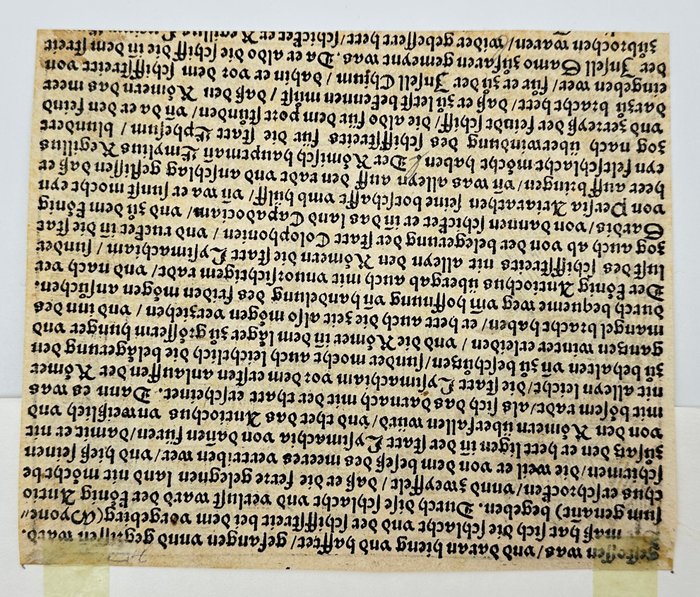 gestossen was/ vnd daran hieng vnd hafftet/ gefangen vnnd gegriffen ward.
maß hat sich die schlacht vnd der schiffstreit bei dem vorgebirg (Myone⸗
sum genant) begeben. Durch dise schlacht vnd verlust ward der König Antio
chus erschrocken/ vnnd zweyffelt/ daß er die ferre gelegnen land nit möchte be
schirmen/ die weil er von dem beseß des meeres vertriben wer/ vnd hieß seinen
zůsatz den er hett ligen in der statt Lysimachia von danen füren/ damit er nit
von den Römern überfallen würd/ vnd thet das Antiochus vnweißlich vnd
mit bösem radt/ als sich das darnach mit der that erscheinet. Dann es was
nit alleyn leicht/ die statt Lysimachiam vor dem ersten anlauffen der Römer
zů behalten vñ zů beschützen/ sunder mocht auch leichtlich die belägerung den
gantzen winter erleiden/ vnd die Römer in dem läger zů grössern hunger vnd
mangel bracht haben/ er hett auch die zeit also mögen verziehen/ vnd im des
durch bequeme weg vñ hoffnung vñ handelung des friden mögen ansůchen.
Der König Antiochus übergab auch mit vnfürsichtigem radt/ vnd nach ver
lust des schiffstreits nit alleyn den Römern die statt Lysimachiam/ sunder
zog auch ab von der belegerung der statt Colophonien/ vnd ruckt in die stat
Sardis/ von dannen schicket er in das land Capadociam/ vnd zů dem König
von Persia Ariarathen seine bottschafft vmb hülff/ vñ wa er sunst mocht eyn
heer auffbringen/ vñ was alleyn auff den radt vnd anschlag geflissen daß er
eyn feltschlacht möcht haben. Der Römisch hauptman Emylius Regillus
zog nach überwindung des schiffstreits für die statt Ephesum/ blündert
vnd zerreyß der feinde schiff/ die also für dem port stůnden/ vñ da er den feind
darzů bracht hett/ daß er zů letst bekennen můst/ daß den Römern das meer
eingeben wer/ für er zů der Insell Chium/ dahin/ er vor dem schiffstreit von
der Insell Samo zůfaren gemeynt was. Da er aldo die schiff die in dem streit
zůbrochen waren/ wider gebessert hett/ schicket er Regillus